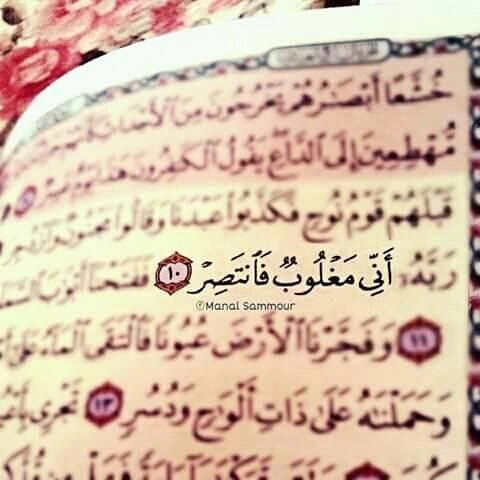 خُشَّعًا أَبْصَٰرُهُمْ يَخْرُجُونَ مِنَ ٱلْأَجْدَاثِ كَأَنَّهُمْ
مُّهْطِعِينَ إِلَى ٱلدَّاعِ يَقُولُ ٱلْكَٰفِرُونَ هَٰذَا يَوْمٌ عَسِرٌ
قَبْلَهُمْ قَوْمُ نُوحٍ فَكَذَّبُوا۟ عَبْدَنَا وَقَالُوا۟ مَجْنُونٌ وَٱزْدُجِرَ
رَبَّهُۥٓ أَنِّى مَغْلُوبٌ فَٱنتَصِرْ ١٠ فَفَتَحْنَآ أَبْوَٰبَ ٱلسَّمَآ
Manal Sammour
١١ وَفَجَّرْنَا ٱلْأَرْضَ عُيُونًا فَٱلْتَقَى ٱلْمَآءُ عَلَىٰٓ
وَحَمَلْنَٰهُ عَلَىٰ ذَاتِ أَلْوَٰحٍ وَدُسُرٍ ١٣ تَجْرِى